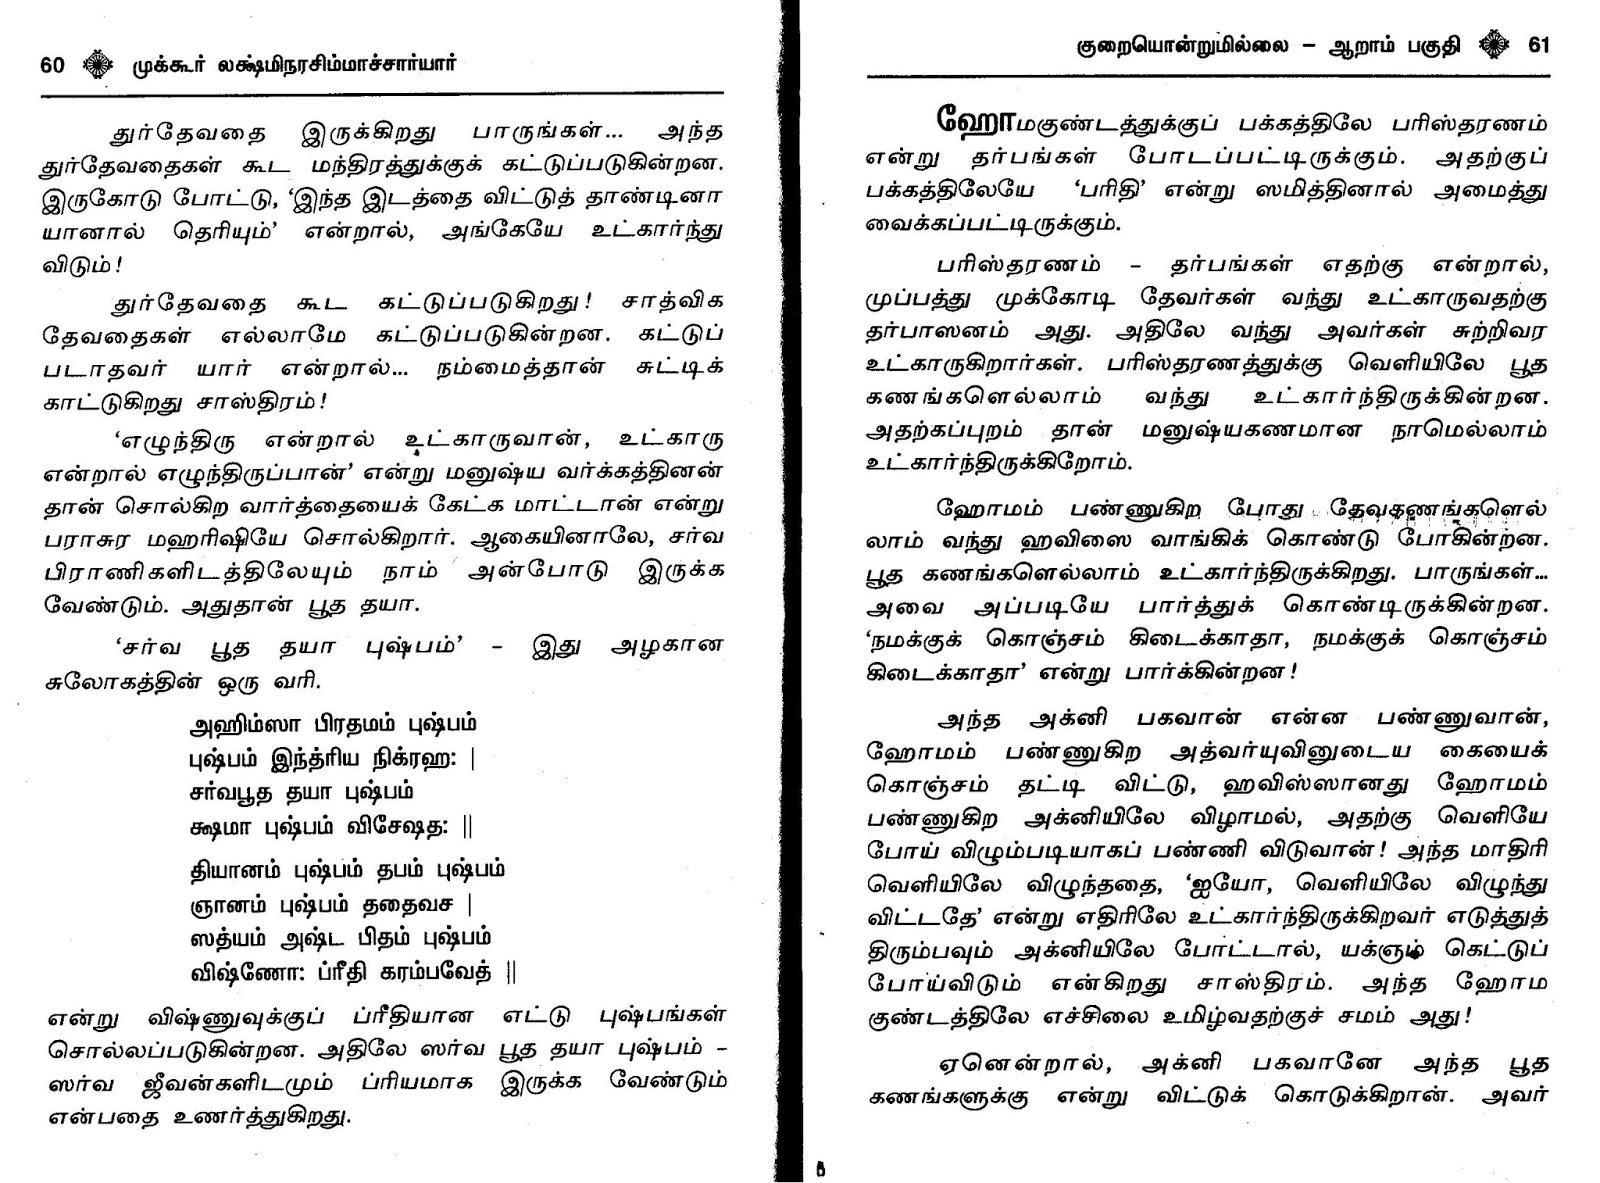 60 முக்கூர் லக்ஷ்மிநரசிம்மாச்சார்யார்
துர்தேவதை இருக்கிறது பாருங்கள்... அந்த
துர்தேவதைகள் கூட மந்திரத்துக்குக் கட்டுப்படுகின்றன.
இருகோடு போட்டு, ‘இந்த இடத்தை விட்டுத் தாண்டினா
யானால் தெரியும்’ என்றால், அங்கேயே உட்கார்ந்து
விடும்!
துர்தேவதை கூட கட்டுப்படுகிறது! சாத்விக
தேவதைகள் எல்லாமே கட்டுப்படுகின்றன. கட்டுப்
படாதவர் யார் என்றால்... நம்மைத்தான் சுட்டிக்
காட்டுகிறது சாஸ்திரம்!
‘எழுந்திரு என்றால் உட்காருவான், உட்காரு
என்றால் எழுந்திருப்பான்’ என்று மனுஷ்ய வர்க்கத்தினன்
தான் சொல்கிற வார்த்தையைக் கேட்க மாட்டான் என்று
பராசுர மஹரிஷியே சொல்கிறார். ஆகையினாலே, சர்வ
பிராணிகளிடத்திலேயும் நாம் அன்போடு இருக்க
வேண்டும். அதுதான் பூத தயா.
‘சர்வ பூத தயா புஷ்பம்’ – இது அழகான
சுலோகத்தின் ஒரு வரி.
அஹிம்ஸா பிரதமம் புஷ்பம்
புஷ்பம் இந்த்ரிய நிக்ரஹ: |
சர்வபூத தயா புஷ்பம்
க்ஷமா புஷ்பம் விசேஷத: ||
தியானம் புஷ்பம் தபம் புஷ்பம்
ஞானம் புஷ்பம் ததைவச |
ஸத்யம் அஷ்ட பிதம் புஷ்பம்
விஷ்ணோ: ப்ரீதி கரம்பவேத் ||
என்று விஷ்ணுவுக்குப் ப்ரீதியான எட்டு புஷ்பங்கள்
சொல்லப்படுகின்றன. அதிலே ஸர்வ பூத தயா புஷ்பம் –
ஸர்வ ஜீவன்களிடமும் ப்ரியமாக இருக்க வேண்டும்
என்பதை உணர்த்துகிறது.
குறையொன்றுமில்லை – ஆறாம் பகுதி 61
ஹோமகுண்டத்துக்குப் பக்கத்திலே பரிஸ்தரணம்
என்று தர்பங்கள் போடப்பட்டிருக்கும். அதற்குப்
பக்கத்திலேயே ‘பரிதி’ என்று ஸமித்தினால் அமைத்து
வைக்கப்பட்டிருக்கும்.
பரிஸ்தரணம் – தர்பங்கள் எதற்கு என்றால்,
முப்பத்து முக்கோடி தேவர்கள் வந்து உட்காருவதற்கு
தர்பாஸனம் அது. அதிலே வந்து அவர்கள் சுற்றிவர
உட்காருகிறார்கள். பரிஸ்தரணத்துக்கு வெளியிலே பூத
கணங்களெல்லாம் வந்து உட்கார்ந்திருக்கின்றன.
அதற்கப்புறம் தான் மனுஷ்யகணமான நாமெல்லாம்
உட்கார்ந்திருக்கிறோம்.
ஹோமம் பண்ணுகிற போது தேவகணங்களெல்
லாம் வந்து ஹவிஸை வாங்கிக் கொண்டு போகின்றன.
பூத கணங்களெல்லாம் உட்கார்ந்திருக்கிறது. பாருங்கள்...
அவை அப்படியே பார்த்துக் கொண்டிருக்கின்றன.
‘நமக்குக் கொஞ்சம் கிடைக்காதா, நமக்குக் கொஞ்சம்
கிடைக்காதா’ என்று பார்க்கின்றன!
அந்த அக்னி பகவான் என்ன பண்ணுவான்,
ஹோமம் பண்ணுகிற அத்வர்யுவினுடைய கையைக்
கொஞ்சம் தட்டி விட்டு, ஹவிஸ்ஸானது ஹோமம்
பண்ணுகிற அக்னியிலே விழாமல், அதற்கு வெளியே
போய் விழும்படியாகப் பண்ணி விடுவான்! அந்த மாதிரி
வெளியிலே விழுந்ததை, ‘ஐயோ, வெளியிலே விழுந்து
விட்டதே’ என்று எதிரிலே உட்கார்ந்திருக்கிறவர் எடுத்துத்
திரும்பவும் அக்னியிலே போட்டால், யக்ஞம் கெட்டுப்
போய்விடும் என்கிறது சாஸ்திரம். அந்த ஹோம
குண்டத்திலே எச்சிலை உமிழ்வதற்குச் சமம் அது!
ஏனென்றால், அக்னி பகவானே அந்த பூத
கணங்களுக்கு என்று விட்டுக் கொடுக்கிறான். அவர்